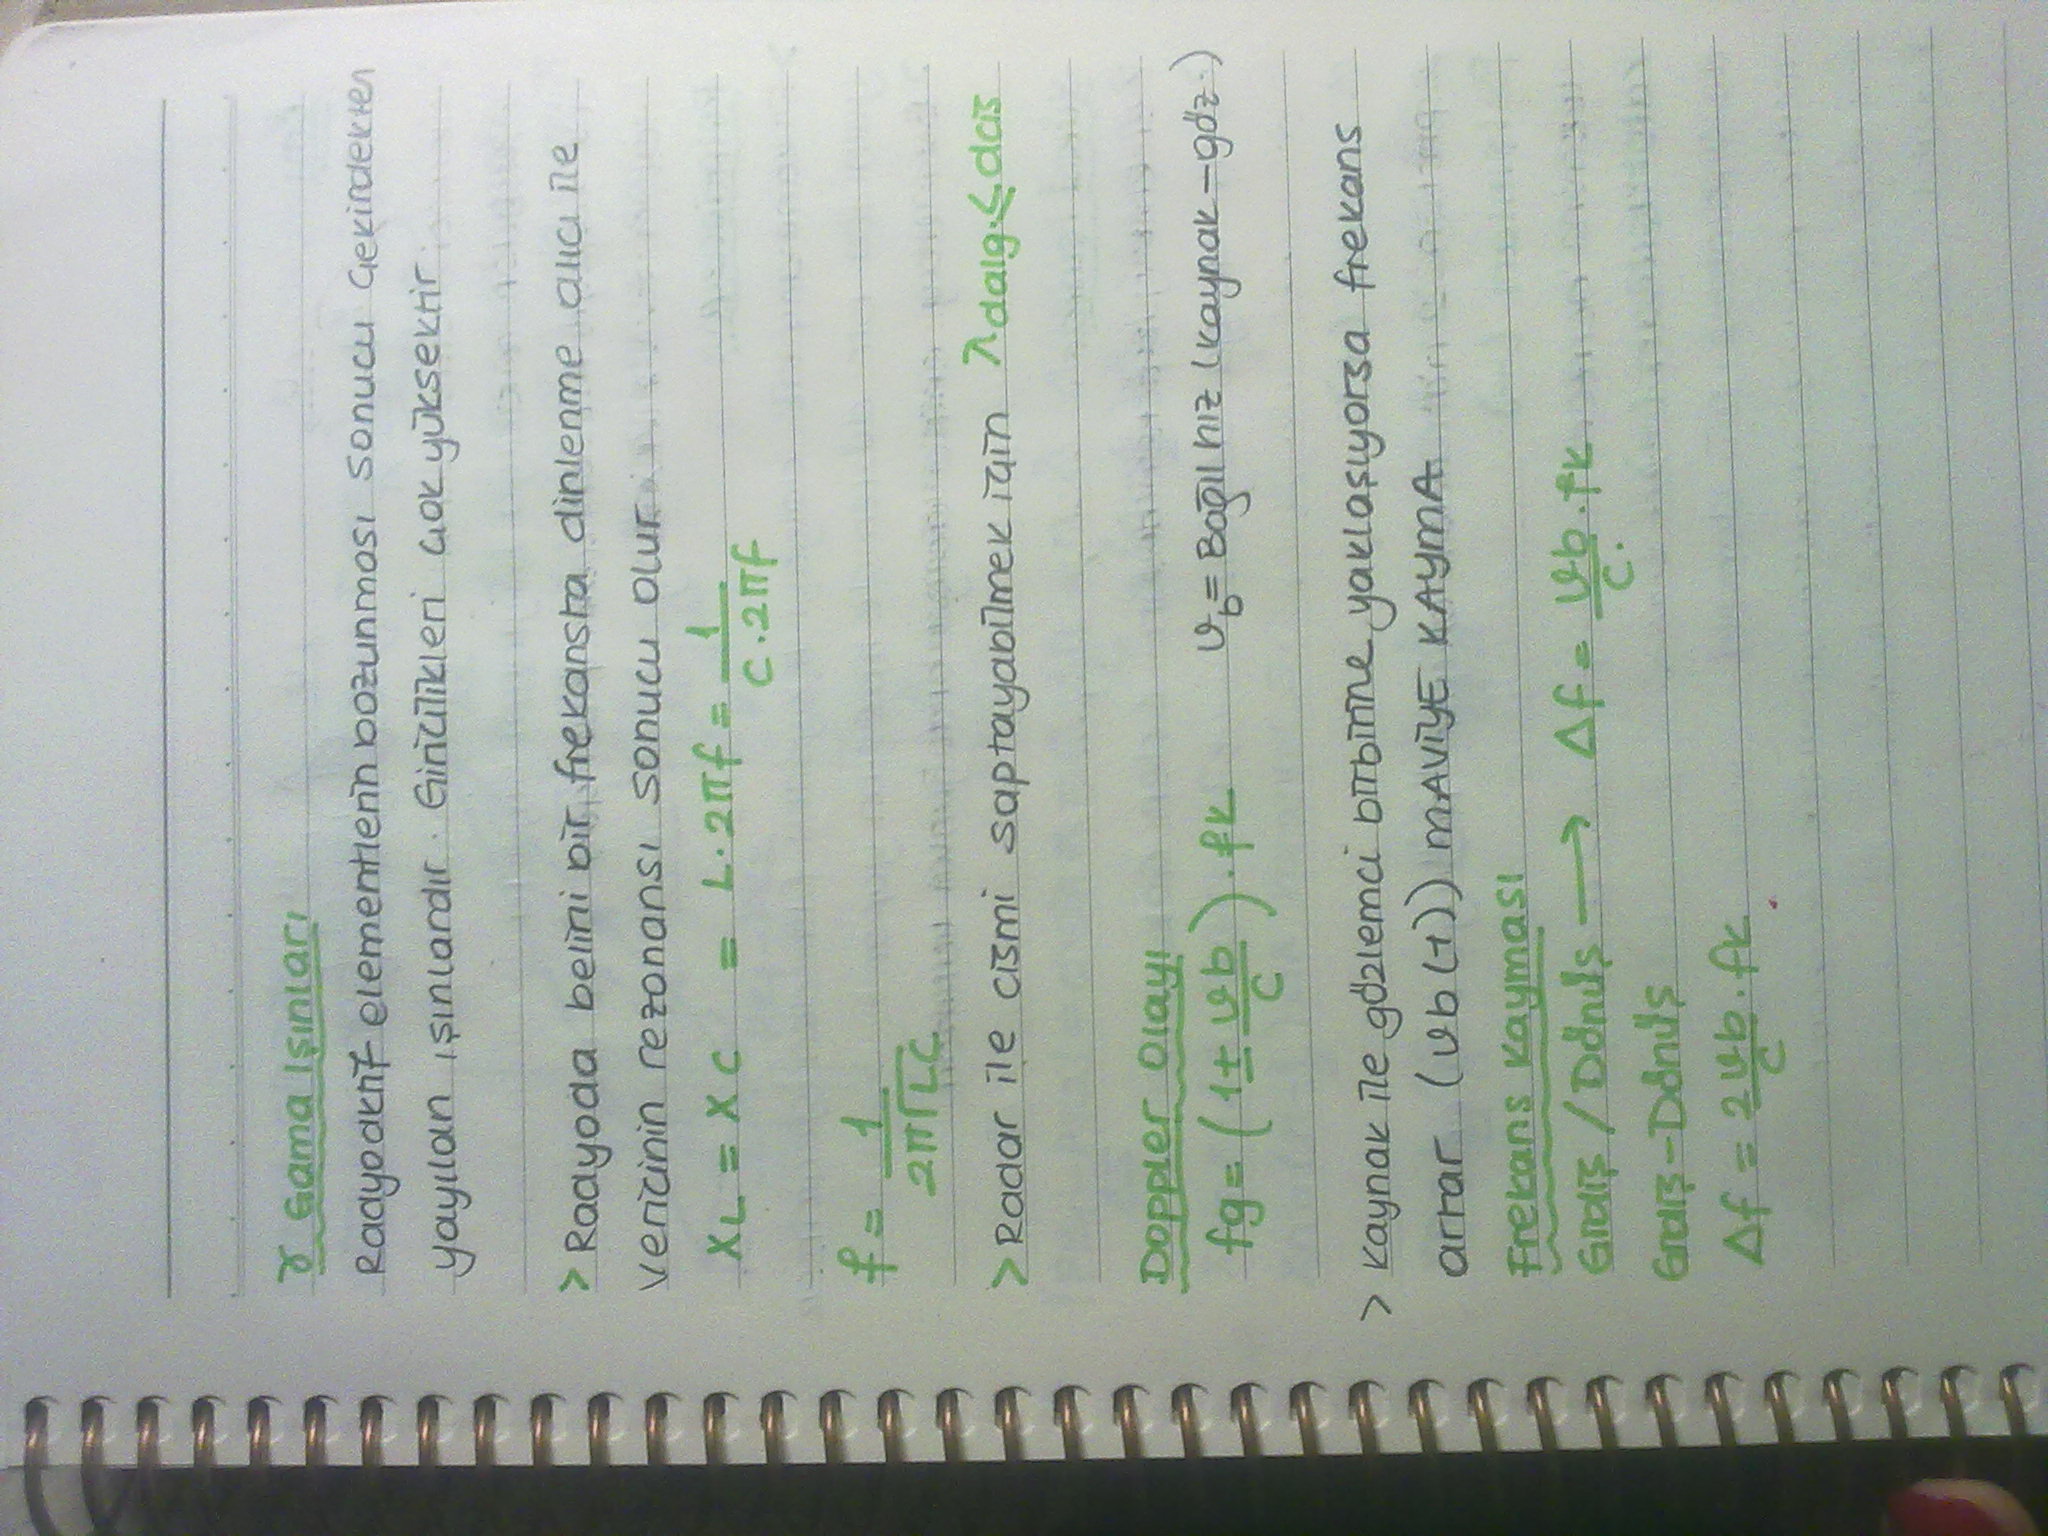 γ Gama Işınları
Radyoaktif elementlerin bozunması sonucu çekirdekten
yayılan ışınlardır. Giricilikleri çok yüksektir.
> Radyoda belirli bir frekansta dinlenme alıcı ile
vericinin rezonansı sonucu olur.
XL = XC = L.2πf = 1/C.2πf
f = 1/2π√LC
> Radar ile cismi saptayabilmek için λdalg. ≤ dcis
Doppler Olayı
fg = (1 ± υb/c).fk υb = Bağıl hız (kaynak-göz.)
> Kaynak ile gözlemci birbirine yaklaşıyorsa frekans
artar (υb(+)) MAVİYE KAYMA
Frekans Kayması
Gidiş / Dönüş → Δf = υb/c.fk
Gidiş-Dönüş
Δf = 2υb/c.fk